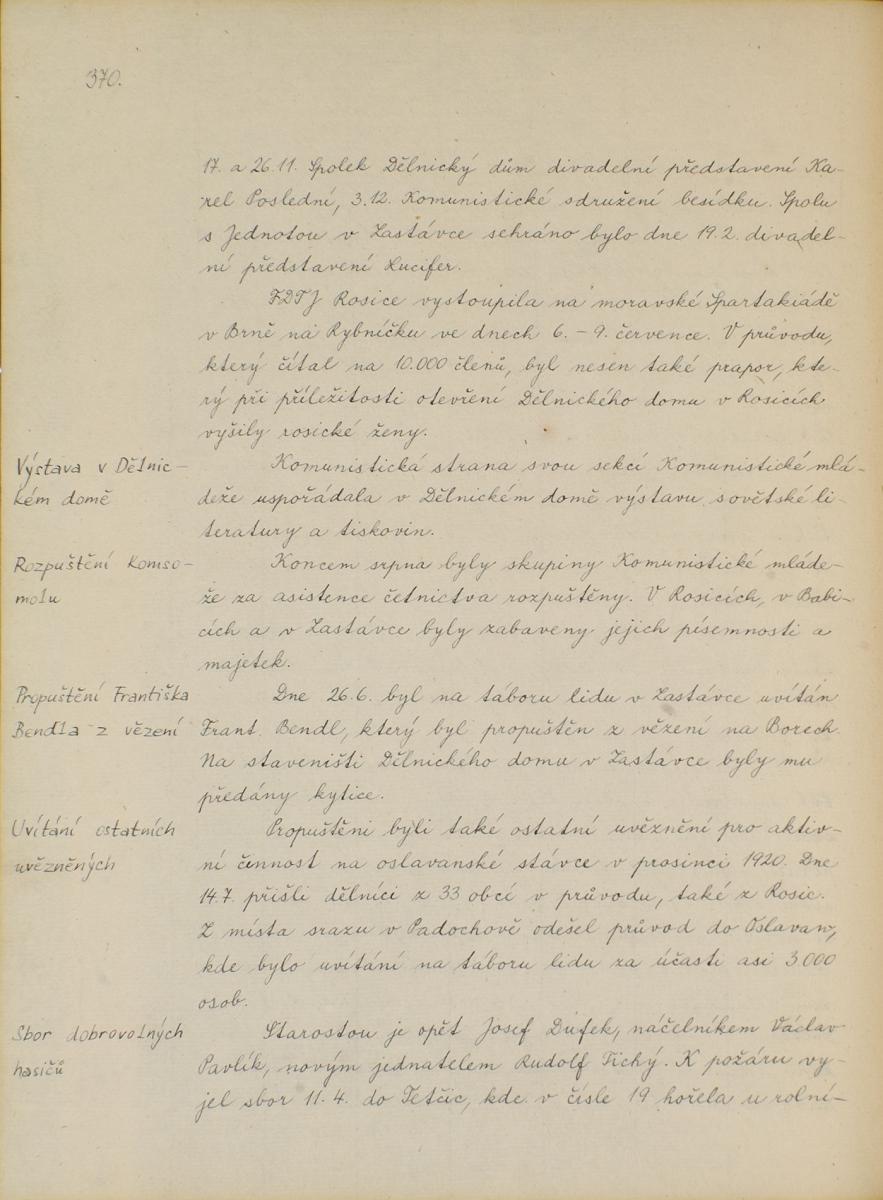 370.
17. a 26.11. Spolek Dělnický dům divadelní představení Ka-
rel Poslední, 3.12. Komunistické sdružení besídku. Spolu
s Jednotou v Zastávce sehráno bylo dne 19.2. divadel-
ní představení Lucifer.
FDTJ Rosice vystoupila na moravské Spartakiádě
v Brně na Rybníčku ve dnech 6. – 9. července. V průvodu,
který čítal na 10.000 členů, byl nesen také prapor, kte-
rý při příležitosti otevření Dělnického domu v Rosicích
vyšily rosické ženy.
Výstava v Dělnic-
kém domě
Komunistická strana svou sekcí Komunistické mlá-
deže uspořádala v Dělnickém domě výstavu sovětské li-
teratury a tiskovin.
Rozpuštění Komso-
molu
Koncem srpna byly skupiny Komunistické mláde-
že za asistence četnictva rozpuštěny. V Rosicích, v Babi-
cích a v Zastávce byly zabaveny jejich písemnosti a
majetek.
Propuštění Františka
Bendla z vězení
Dne 26.6. byl na táboru lidu v Zastávce uvítán
Frant. Bendl, který byl propuštěn z vězení na Borech.
Na staveništi Dělnického domu v Zastávce byly mu
předány kytice.
Uvítání ostatních
uvězněných
Propuštěni byli také ostatní uvěznění pro aktiv-
ní činnost na oslavanské stávce v prosinci 1920. Dne
14.7. přišli dělníci z 33 obcí v průvodu, také z Rosic.
Z místa srazu v Padochově odešel průvod do Oslavan,
kde bylo uvítání na táboru lidu za účasti asi 3 000
osob.
Sbor dobrovolných
hasičů
Starostou je opět Josef Dufek, náčelníkem Václav
Pavlík, novým jednatelem Rudolf Tichý. K požáru vy-
jel sbor 11.4. do Tetčic, kde v čísle 19 hořela u rolní-